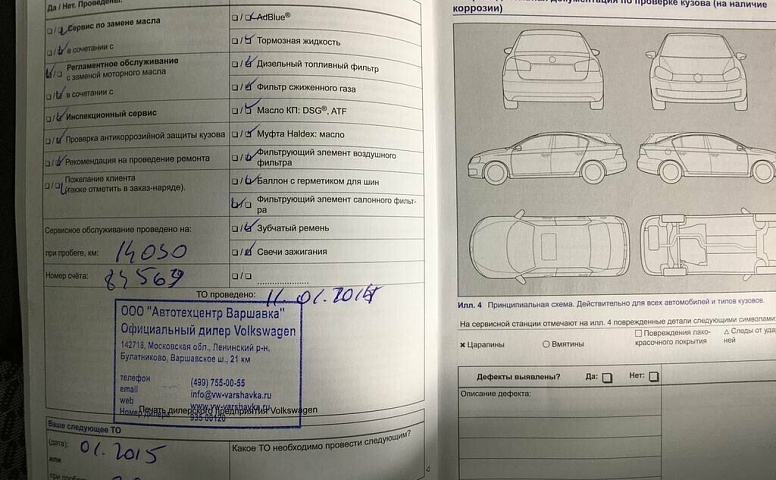 Да / Нет. Проведены:
Сервис по замене масла
в сочетании с
Регламентное обслуживание
с заменой моторного масла
в сочетании с
Инспекционный сервис
Проверка антикоррозийной защиты кузова
Рекомендация на проведение ремонта
Пожелание клиента
(также отметить в заказ-наряде).
Сервисное обслуживание проведено на:
при пробеге, км: 14050
Номер счёта: 84569
AdBlue®
Тормозная жидкость
Дизельный топливный фильтр
Фильтр сжиженного газа
Масло КП: DSG®, ATF
Муфта Haldex: масло
Фильтрующий элемент воздушного
фильтра
Баллон с герметиком для шин
Фильтрующий элемент салонного фильт-
ра
Зубчатый ремень
Свечи зажигания
ТО проведено: 11.01.2014
ООО "Автотехцентр Варшавка"
Официальный дилер Volkswagen
142718, Московская обл., Ленинский р-н,
Булатниково, Варшавское ш., 21 км
телефон (499) 755-00-55
email info@vw-varshavka.ru
web www.vw-varshavka.ru
Номер дилера
Печать дилерского предприятия Volkswagen
Ваше следующее ТО
(дата): 01.2015
или
Какое ТО необходимо провести следующим?
документация по проверке кузова (на наличие
коррозии)
Илл. 4 Принципиальная схема. Действительно для всех автомобилей и типов кузовов.
На сервисной станции отмечают на илл. 4 поврежденные детали следующими символами:
× Царапины
○ Вмятины
□ Повреждения лако-
красочного покрытия
△ Следы от
ней
Дефекты выявлены? Да: Нет:
Описание дефекта: